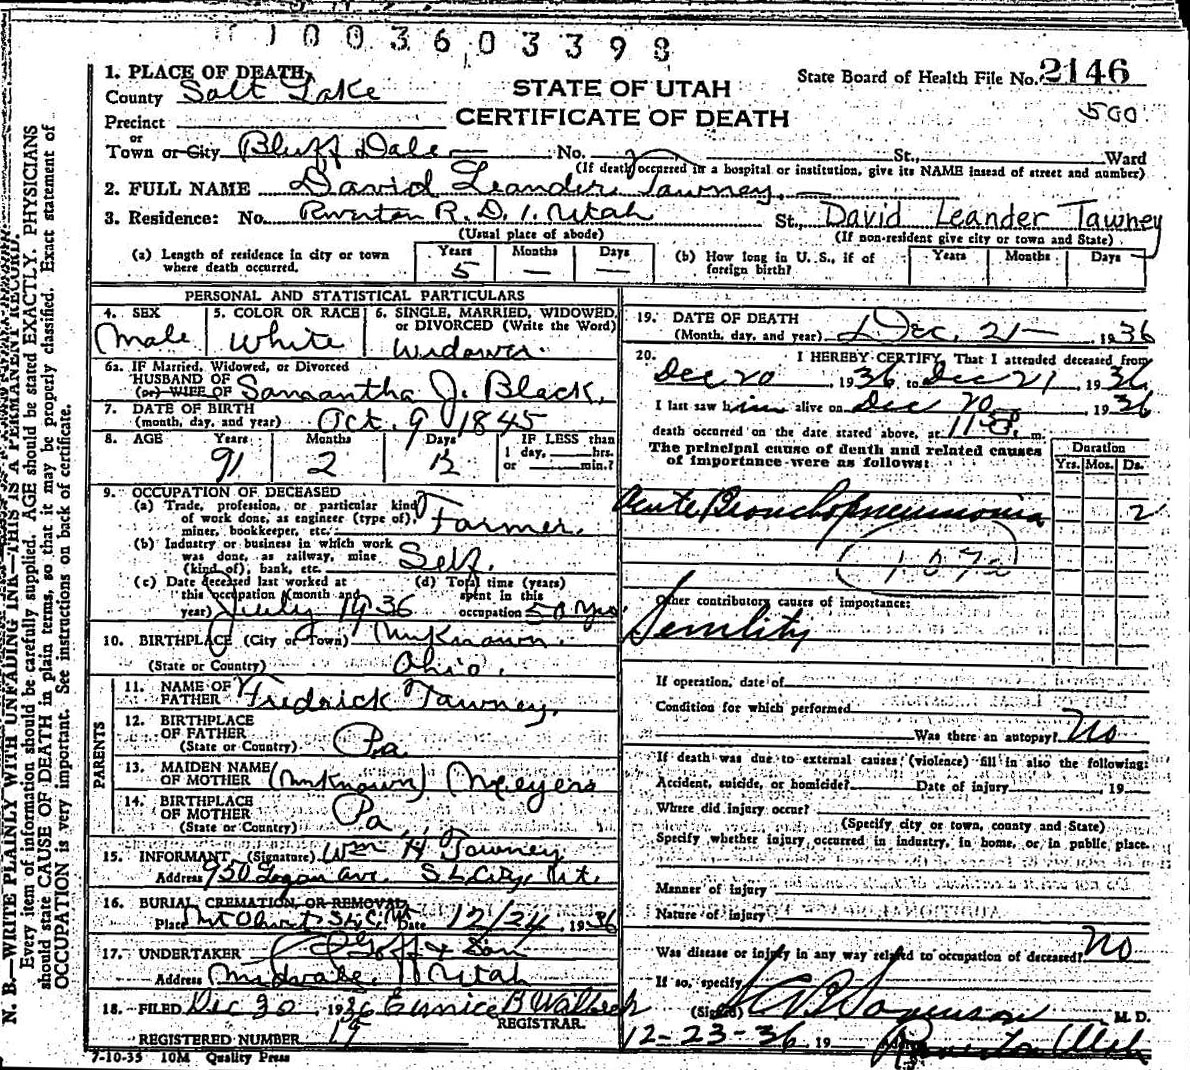 1003603398
1. PLACE OF DEATH
County Salt Lake
STATE OF UTAH
State Board of Health File No. 2146
Precinct
CERTIFICATE OF DEATH
500
or
Town or City Bluff Dale No. St., Ward
(If death occurred in a hospital or institution, give its NAME insead of street and number)
2. FULL NAME David Leander Tawney
3. Residence: No. Riverton R.D. 1. Utah St. David Leander Tawney
(Usual place of abode) (If non-resident give city or town and State)
(a) Length of residence in city or town where death occurred. Years 5 Months — Days —
(b) How long in U. S., if of foreign birth? Years Months Days
PERSONAL AND STATISTICAL PARTICULARS
4. SEX Male
5. COLOR OR RACE White
6. SINGLE, MARRIED, WIDOWED, or DIVORCED (Write the Word) Widower.
6a. IF Married, Widowed, or Divorced
HUSBAND OF
(or) WIFE OF Samantha J. Black.
7. DATE OF BIRTH
(month, day, and year) Oct. 9 1845
8. AGE Years 91 Months 2 Days 12 IF LESS than 1 day, hrs. or min.?
9. OCCUPATION OF DECEASED
(a) Trade, profession, or particular kind
of work done, as engineer (type of),
miner, bookkeeper, etc. Farmer.
(b) Industry or business in which work
was done, as railway, mine
(kind of), bank, etc. Self.
(c) Date deceased last worked at this occupation (month and year) July 1936
(d) Total time (years) spent in this occupation 50 yrs.
10. BIRTHPLACE (City or Town) Unknown.
(State or Country) Ohio.
PARENTS
11. NAME OF FATHER Fredrick Tawney.
12. BIRTHPLACE OF FATHER
(State or Country) Pa.
13. MAIDEN NAME OF MOTHER (Unknown) Meyers
14. BIRTHPLACE OF MOTHER
(State or Country) Pa.
15. INFORMANT (Signature) Wm H Tawney
Address 950 Logan Ave. S.L. City, Ut.
16. BURIAL, CREMATION, OR REMOVAL,
Place Mt Olivet S.L.C. Ut Date 12/24, 1936
17. UNDERTAKER Goff & Son
Address Midvale. Utah
18. FILED Dec 30, 1936 Eunice B Walbeck
REGISTRAR.
REGISTERED NUMBER 15
7-10-35 10M Quality Press
19. DATE OF DEATH
(Month, day, and year) Dec. 21— 1936
20. I HEREBY CERTIFY, That I attended deceased from
Dec 20, 1936 to Dec 21, 1936
I last saw him alive on Dec 20, 1936
death occurred on the date stated above, at m.
The principal cause of death and related causes
of importance were as follows:
Duration
Yrs. Mos. Ds.
Acute Bronchopneumonia 2
107a
Other contributory causes of importance:
Senility
If operation, date of
Condition for which performed
Was there an autopsy? No
If death was due to external causes (violence) fill in also the following:
Accident, suicide, or homicide? Date of injury 19
Where did injury occur?
(Specify city or town, county and State)
Specify whether injury occurred in industry, in home, or in public place.
Manner of injury
Nature of injury
Was disease or injury in any way related to occupation of deceased? No
If so, specify
(Signed) Sorenson M. D.
12-23-36, 19 Address Riverton Utah
N. B.—WRITE PLAINLY WITH UNFADING INK—THIS IS A PERMANENT RECORD.
Every item of information should be carefully supplied. AGE should be stated EXACTLY. PHYSICIANS
should state CAUSE OF DEATH in plain terms, so that it may be properly classified. Exact statement of
OCCUPATION is very important. See instructions on back of certificate.